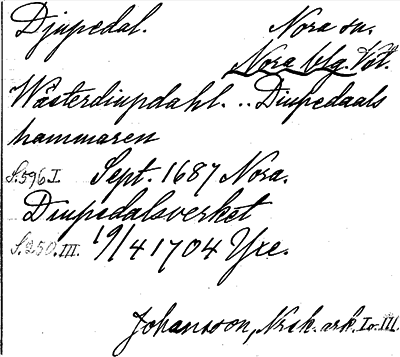 Djupedal. Nora sn.
Nora blg. Vstl.
Wästerdiupdahl. .. Diupedaals
hammaren
S.596 I Sept. 1687 Nora.
Diupedalsverket
S.250.III. 19/4 1704 Yxe.
Johansson, Nrsk. ark. I o. III.